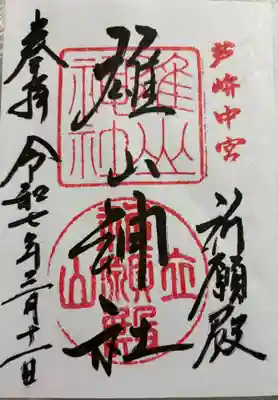 芦峅中宮
祈願殿
雄山神社
雄山神社
立山祈願殿
奉拝
令和七年三月十一日